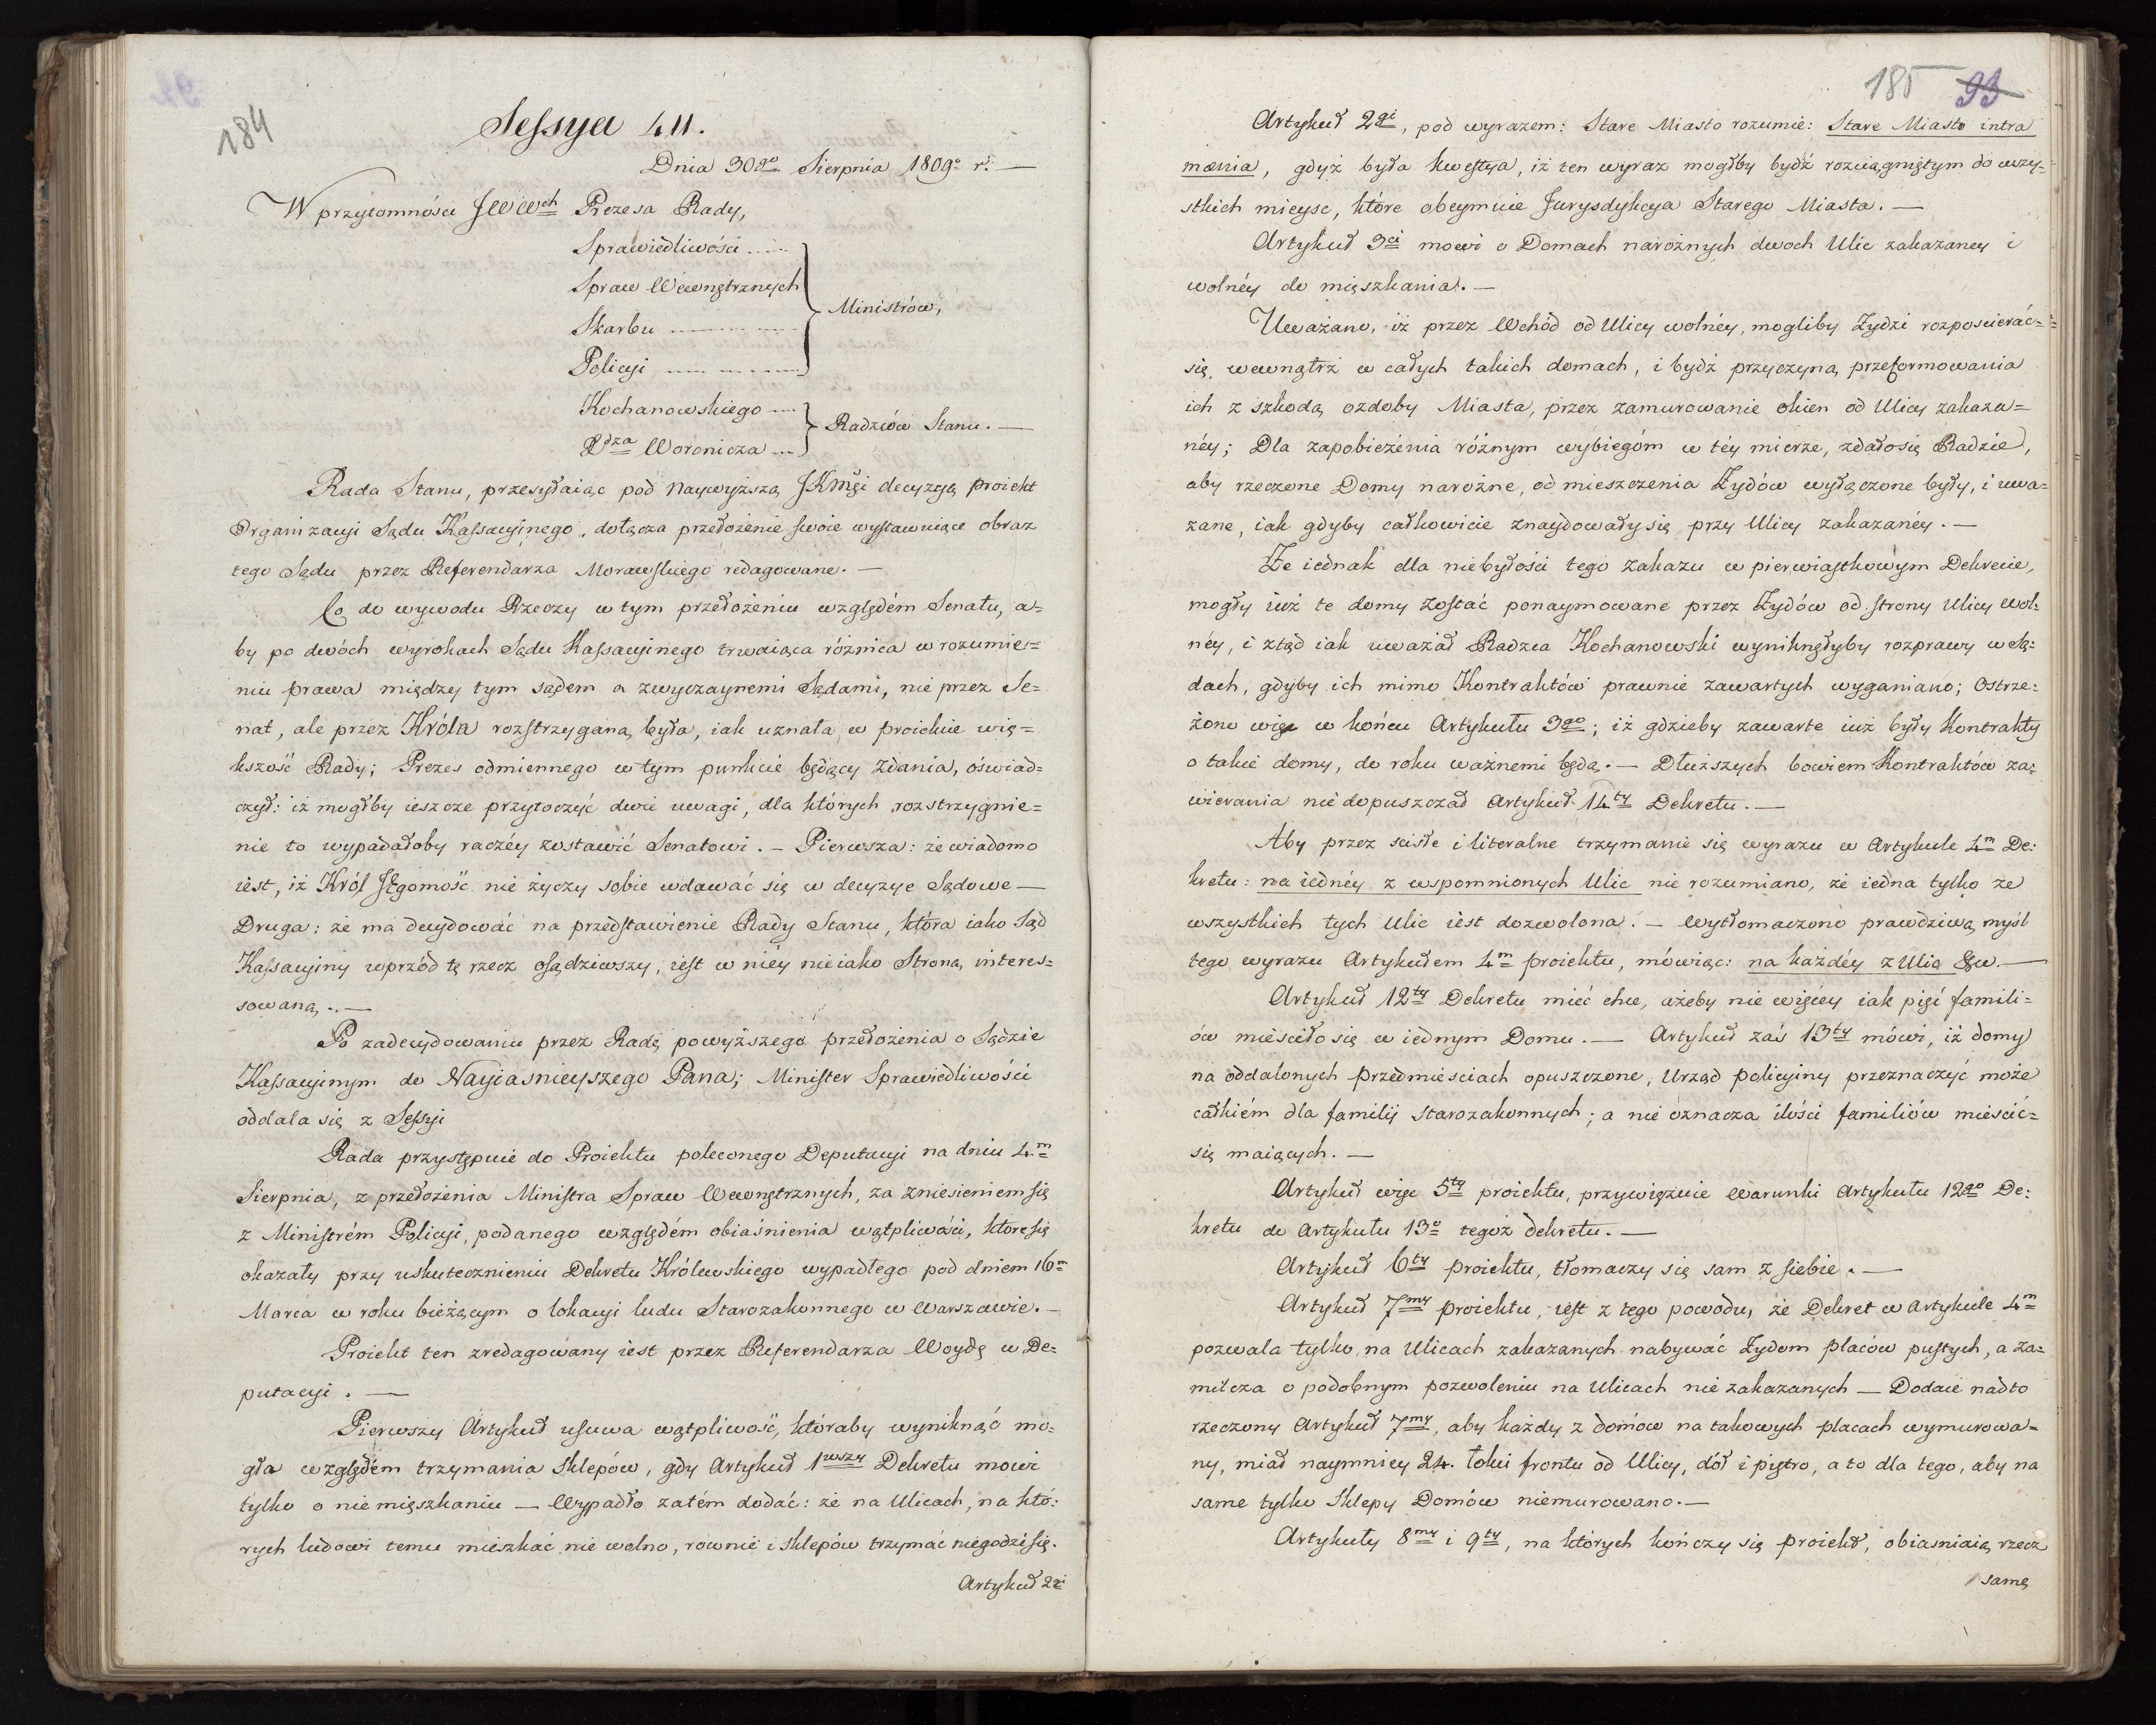 184
Sessya 411.
Dnia 30go Sierpnia 1809o r. —
W przytomności JWWch Prezesa Rady,
Sprawiedliwości
Spraw Wewnętrznych
Skarbu
Policyi
Ministrów,
Kochanowskiego
Xdza Woronicza
Radzców Stanu. —
Rada Stanu, przesyłaiąc pod Naywyższą JKMci decyzyą proiekt
Organizacyi Sądu Kassacyinego, dołącza przełożenie swoie wystawuiące obraz
tego Sądu przez Referendarza Morawskiego redagowane. —
Co do wywodu Rzeczy w tym przełożeniu względém Senatu, a=
by po dwóch wyrokach Sądu Kassacyinego trwaiąca różnica w rozumie=
niu prawa między tym sądem a zwyczaynemi Sądami, nie przez Se=
nat, ale przez Króla rozstrzyganą była, iak uznała w proiekcie wię=
kszość Rady; Prezes odmiennego w tym punkcie będący zdania, oświad=
czył: iż mogłby ieszcze przytoczyć dwie uwagi, dla których rozstrzygnie=
nie to wypadałoby raczéy zostawić Senatowi. — Pierwsza: że wiadomo
iest, iż Król Jegomość nie życzy sobie wdawać się w decyzye Sądowe —
Druga: że ma decydować na przedstawienie Rady Stanu, która iako Sąd
Kassacyiny wprzód tę rzecz osądziwszy, iest w niéy nieiako Stroną interes=
sowaną. —
Po zadecydowaniu przez Radę powyższego przełożenia o Sądzie
Kassacyinym do Nayiasnieyszego Pana; Minister Sprawiedliwości
oddala się z Sessyi
Rada przystępuie do Proiektu poleconego Deputacyi na dniu 4m
Sierpnia, z przełożenia Ministra Spraw Wewnętrznych, za zniesieniem się
z Ministrém Policyi, podanego względém obiaśnienia wątpliwości, które się
okazały przy uskutecznieniu Dekretu Królewskiego wypadłego pod dniem 16m
Marca w roku bieżącym o lokacyi ludu Starozakonnego w Warszawie. —
Proiekt ten zredagowany iest przez Referendarza Woydę w De=
putacyi. —
Pierwszy Artykuł usuwa wątpliwość, któraby wyniknąć mo=
gła względém trzymania Sklepów, gdy Artykuł 1wszy Dekretu mowi
tylko o niemięszkaniu — Wypadło zatém dodać: że na Ulicach, na któ=
rych ludowi temu mieszkać nie wolno, rownie i Sklepów trzymać niegodzi się.
Artykuł 2gi
185 93
Artykuł 2gi, pod wyrazem: Stare Miasto rozumie: Stare Miasto intra
mænia, gdyż była kwestya, iż ten wyraz mogłby bydź rozciągniętym do wszy=
stkich mieysc, które obeymuie Jurysdykcya Starego Miasta. —
Artykuł 3ci mowi o Domach narożnych dwoch Ulic zakazaney i
wolnéy do mięszkania. —
Uważano, iż przez Wchód od Ulicy wolnéy, mogliby Żydzi rozpościerać=
się wewnątrz w całych takich domach, i bydź przyczyną przeformowania
ich z szkodą ozdoby Miasta, przez zamurowanie okien od Ulicy zakaza=
néy; Dla zapobieżenia różnym wybiegóm w téy mierze, zdało się Radzie,
aby rzeczone Domy narożne, od mieszczenia Żydów wyłączone były, i uwa=
żane, iak gdyby całkowicie znaydowały się przy Ulicy zakazanéy. —
Że iednak dla niebyłości tego zakazu w pierwiastkowym Dekrecie,
mogły iuż te domy zostać ponaymowane przez Żydów od strony Ulicy wol=
néy, i ztąd iak uważał Radzca Kochanowski wyniknęłyby rozprawy w Są=
dach, gdyby ich mimo Kontraktów prawnie zawartych wyganiano; Ostrze=
żono więc w końcu Artykułu 3go; iż gdzieby zawarte iuż były Kontrakty
o takie domy, do roku ważnemi będą. — Dłuższych bowiem Kontraktów za=
wierania nie dopuszczał Artykuł 14ty Dekretu. —
Aby przez ścisłe i literalne trzymanie się wyrazu w Artykule 4m De=
kretu: na iednéy z wspomnionych Ulic nie rozumiano, że iedna tylko ze
wszystkich tych Ulic iest dozwolona. — Wytłomaczono prawdziwą myśl
tego wyrazu Artykułem 4m proiektu, mówiąc: na każdéy z Ulic &w. —
Artykuł 12ty Dekretu mieć chce, ażeby nie więcéy iak pięć famili=
ów mieściło się w iednym Domu. — Artykuł zaś 13ty mówi, iż domy
na oddalonych przedmieściach opuszczone, Urząd policyiny przeznaczyć może
całkiém dla familij starozakonnych; a nie oznacza ilości familiów mieścić=
się maiących. —
Artykuł więc 5ty proiektu, przywięzuie Warunki Artykułu 12go De=
kretu do Artykułu 13o tegoż dekretu. —
Artykuł 6ty proiektu, tłomaczy się sam z siebie. —
Artykuł 7my proiektu, iest z tego powodu, że Dekret w Artykule 4m
pozwala tylko na Ulicach zakazanych nabywać Żydom placów pustych, a za=
milcza o podobnym pozwoleniu na Ulicach nie zakazanych — Dodaie nadto
rzeczony Artykuł 7my, aby każdy z domów na takowych placach wymurowa=
ny, miał naymniey 24. łokci frontu od Ulicy, dół i piętro, a to dla tego, aby na
same tylko Sklepy Domów niemurowano. —
Artykuły 8my i 9ty, na których kończy się proiekt, obiaśniaią rzecz
samę